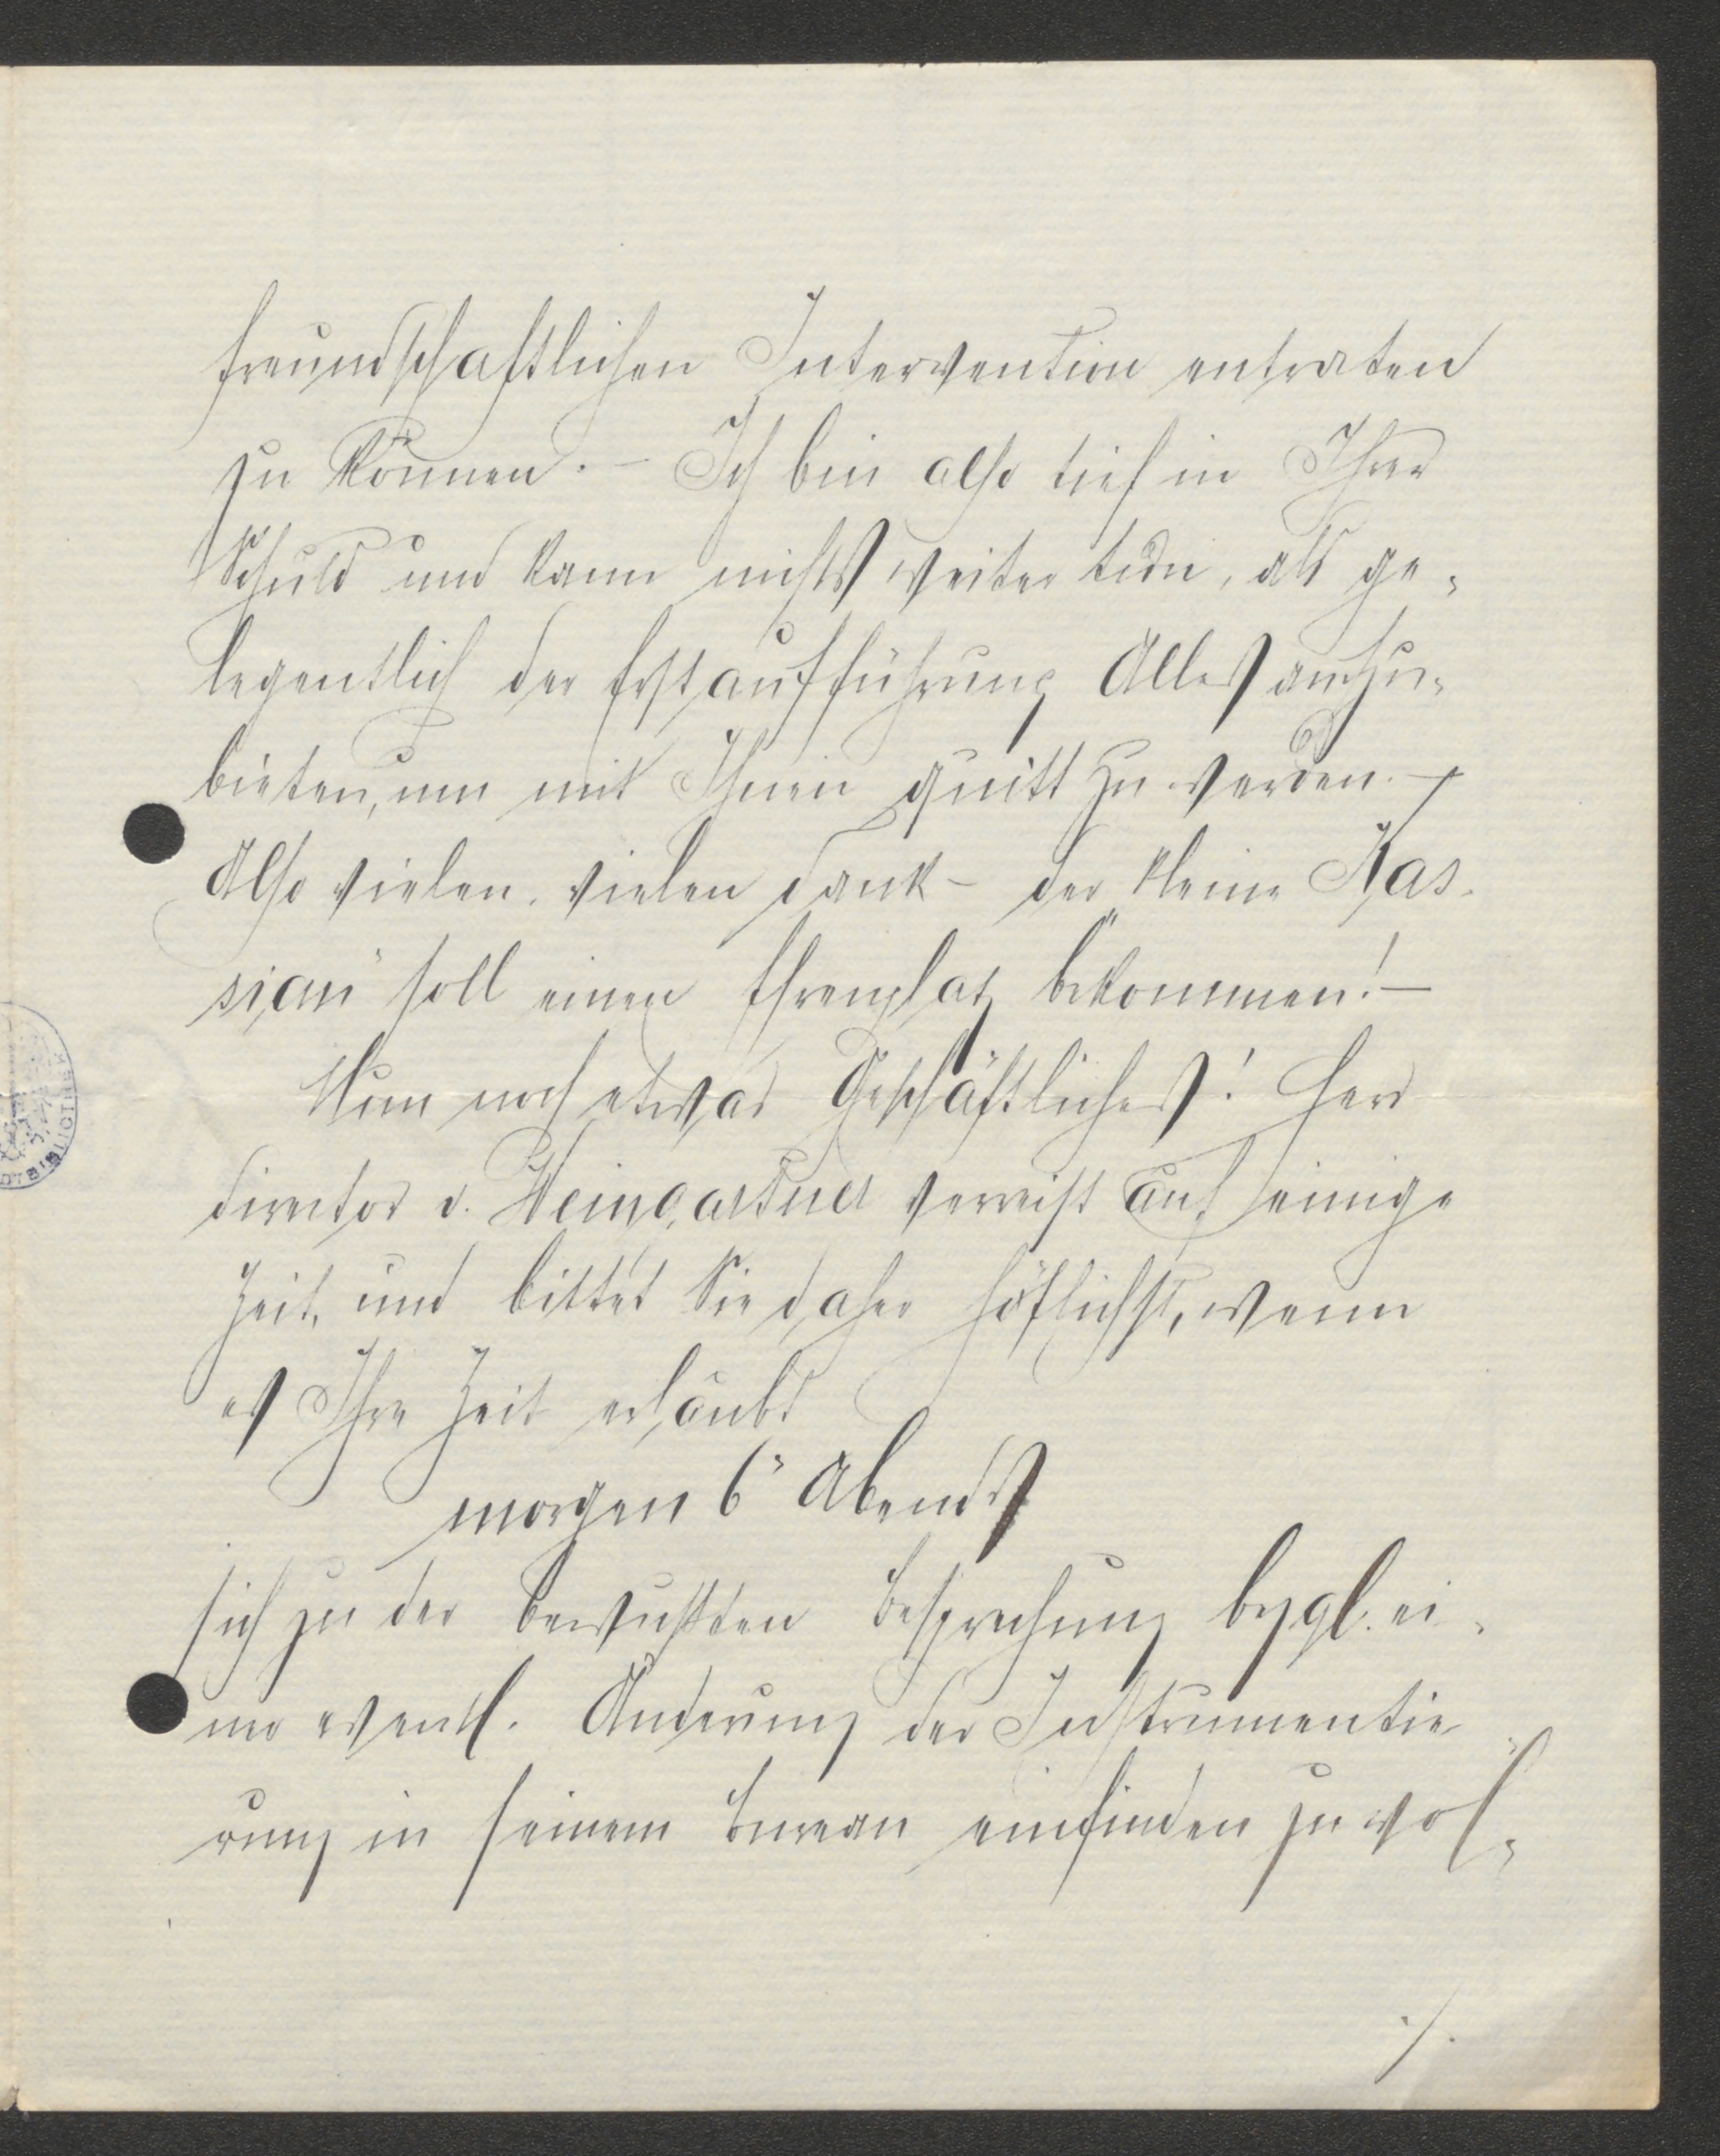 freundschaftlichen Intervention entraten
zu können. – Ich bin also tief in Ihrer
Schuld und kann nichts weiter tun, als ge-
legentlich der Erstaufführung Alles aufzu-
bieten, um mit Ihnen quitt zu werden. –
Also vielen, vielen Dank – der kleine „Kas-
sian“ soll einen Ehrenplatz bekommen! –
Nun noch etwas Geschäftliches! Herr
Director v. Weingartner verreist auf einige
Zeit, und bittet Sie daher höflichst, wenn
es Ihre Zeit erlaubt
morgen 6h Abends
sich zu der bewußten Besprechung bezgl. ei-
ner eventl. Änderung der Instrumentie-
rung in seinem Bureau einfinden zu wol-
./.